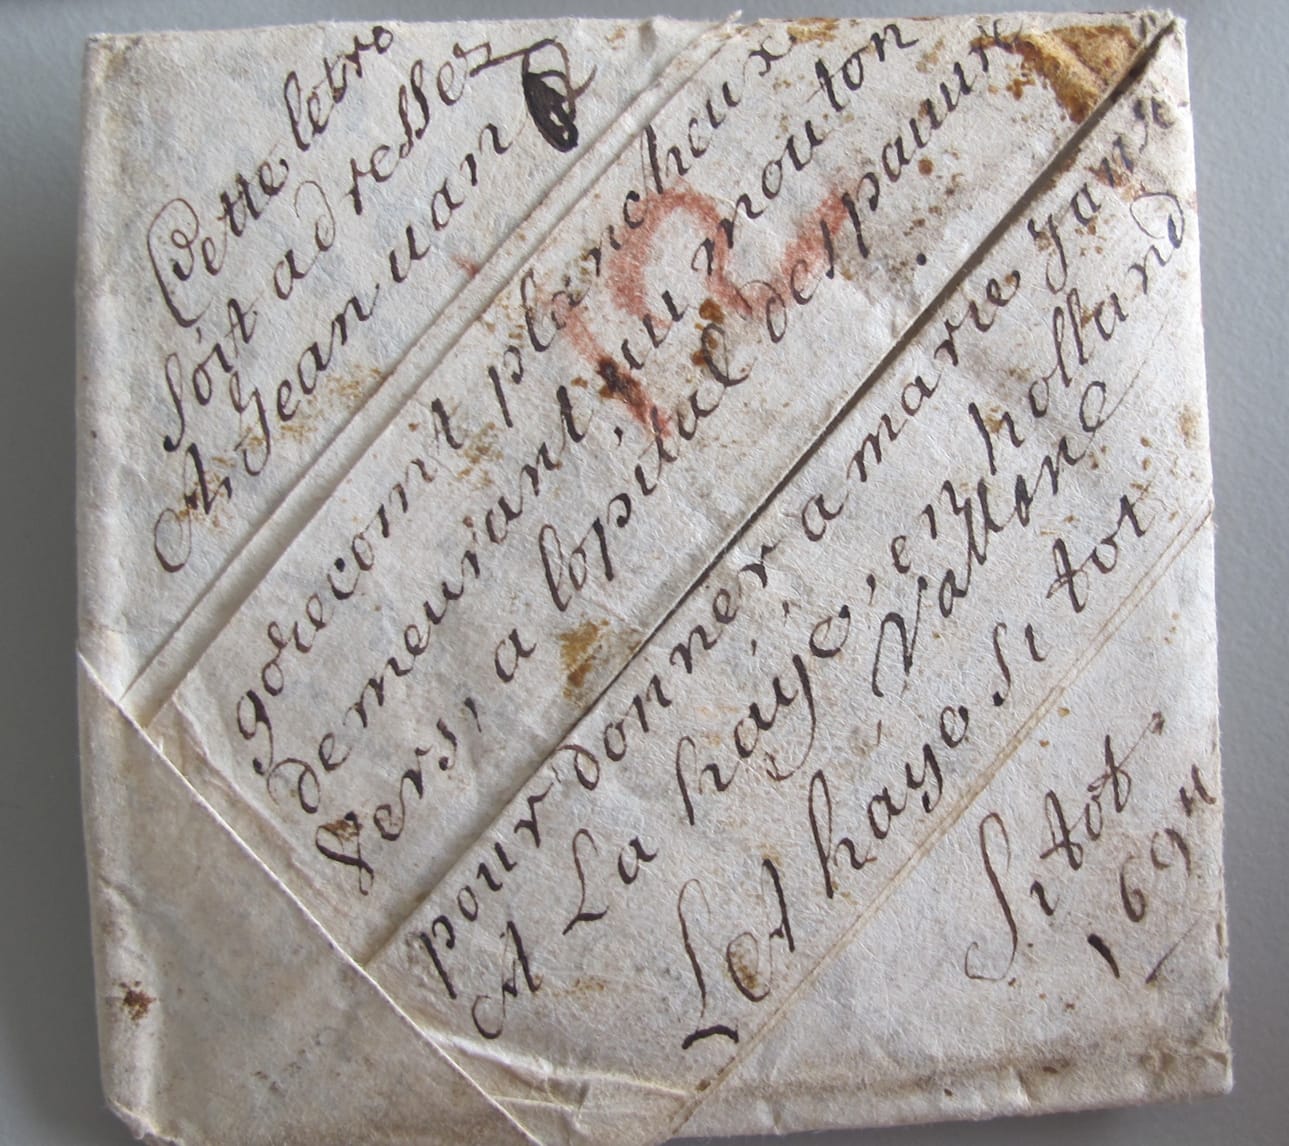 Cette letre
soit adresser
A Jean uan
gorecomt plancheux
demeurant, au mouton
Vers, a lopital des pauure
pour donner a marie jans
A La haye, en holland
Vallone
Let haye si tot
Si tot.
169